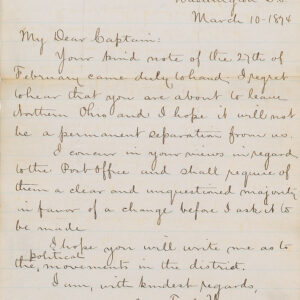 Washington D.C.
March 10-1874
My Dear Captain:
Your kind note of the 27th of
February came duly to hand. I regret
to hear that you are about to leave
Northern Ohio and I hope it will not
be a permanent separation from us.
I concur in your views in regard
to the Post Office and shall require of
them a clear and unquestioned majority
in favor of a change before I ask it to
be made
I hope you will write me as to
the political movements in the district.
I am, with kindest regards,